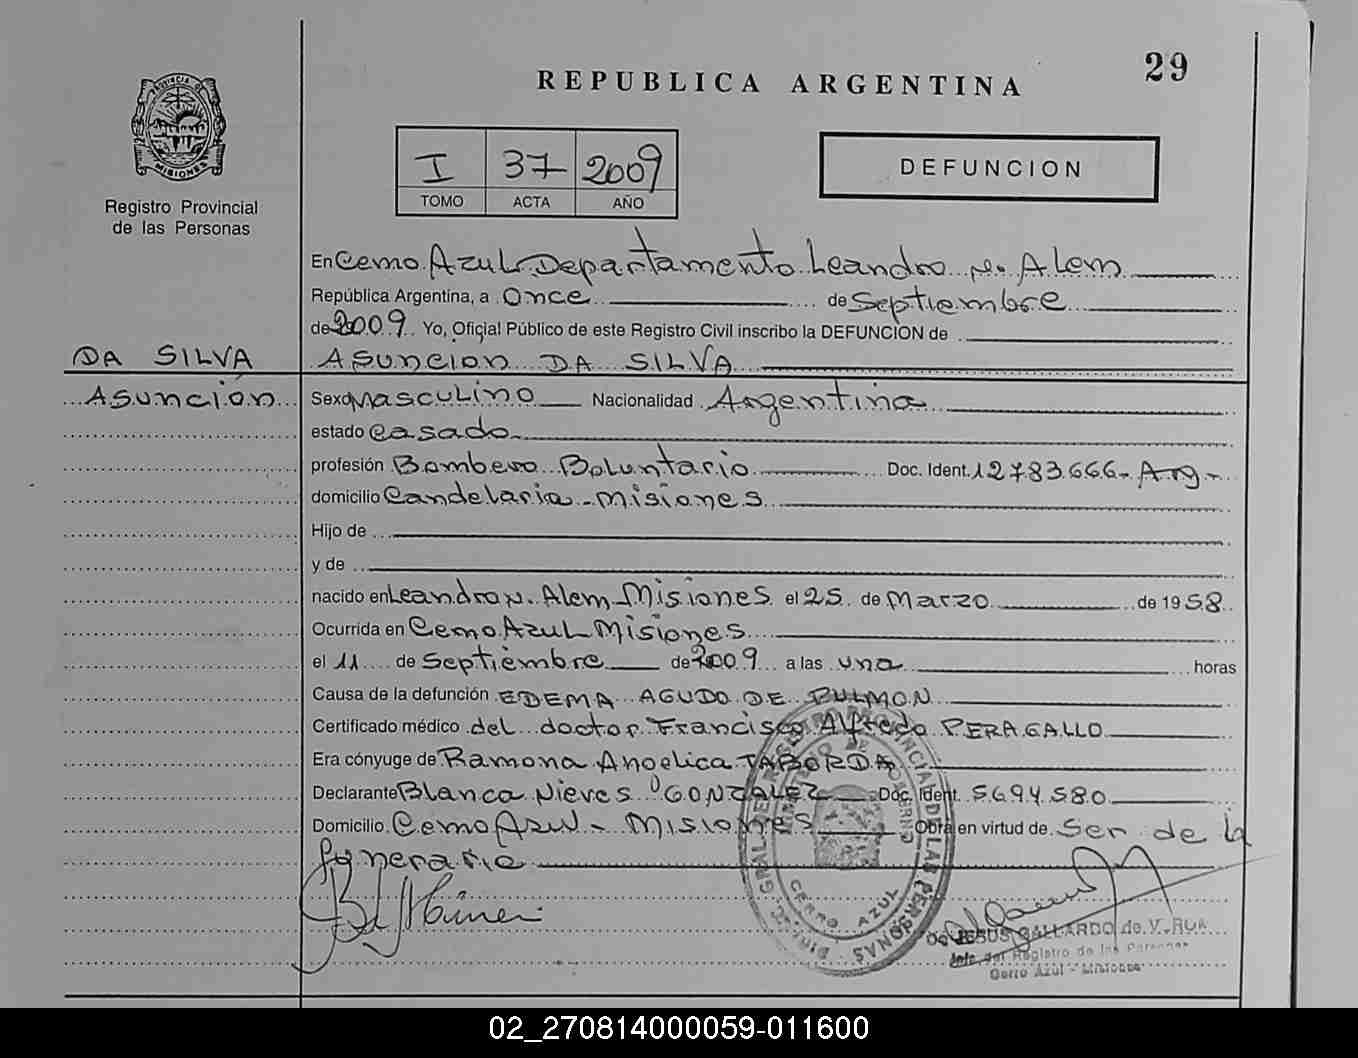 29
REPUBLICA ARGENTINA
PROVINCIA DE
MISIONES
Registro Provincial
de las Personas
I 37 2009
TOMO ACTA AÑO
DEFUNCION
En Cerro Azul Departamento Leandro N. Alem
República Argentina, a Once de Septiembre
de 2009 Yo, Oficial Público de este Registro Civil inscribo la DEFUNCION de
DA SILVA ASUNCION DA SILVA
Asunción Sexo masculino Nacionalidad Argentina
estado Casado
profesión Bombero Boluntario Doc. Ident. 12783.666- Arg-
domicilio Candelaria - Misiones
Hijo de
y de
nacido en Leandro N. Alem Misiones el 25 de Marzo de 1958
Ocurrida en Cerro Azul Misiones
el 11 de Septiembre de 2009 a las una horas
Causa de la defunción EDEMA AGUDO DE PULMON
Certificado médico del doctor Francisco Alfredo PERAGALLO
Era cónyuge de Ramona Angelica TABORDA
Declarante Blanca Nieves GONZALEZ Doc. Ident. 5.694.580
Domicilio Cerro Azul - Misiones Obra en virtud de Ser de la
funeraria
CERRO AZUL
JESUS GALLARDO de V. RUA
Jefe del Registro de las Personas
Cerro Azul - Misiones
02_270814000059-011600